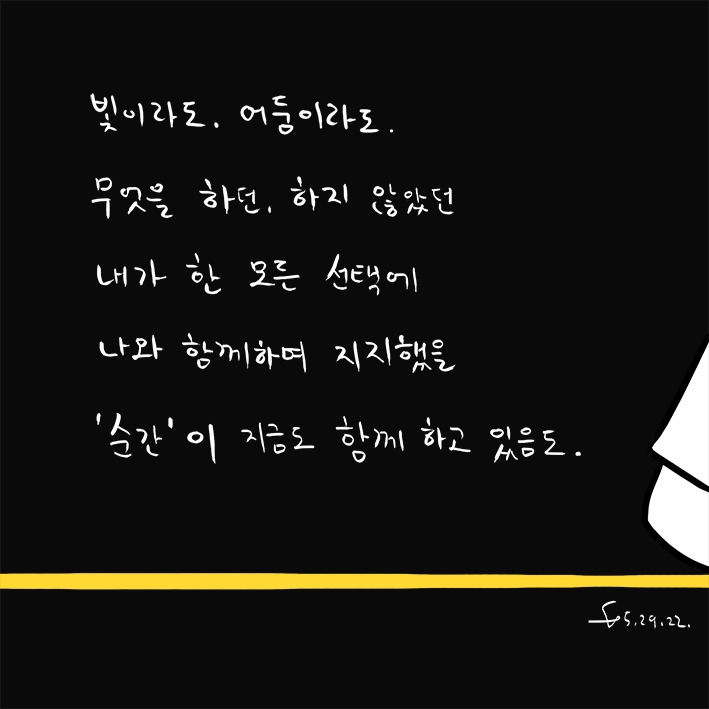 빛이라도. 어둠이라도.
무엇을 하던, 하지 않았던
내가 한 모든 선택에
나와 함께하며 지지했을
'순간'이 지금도 함께 하고 있음도.
5.29.22.